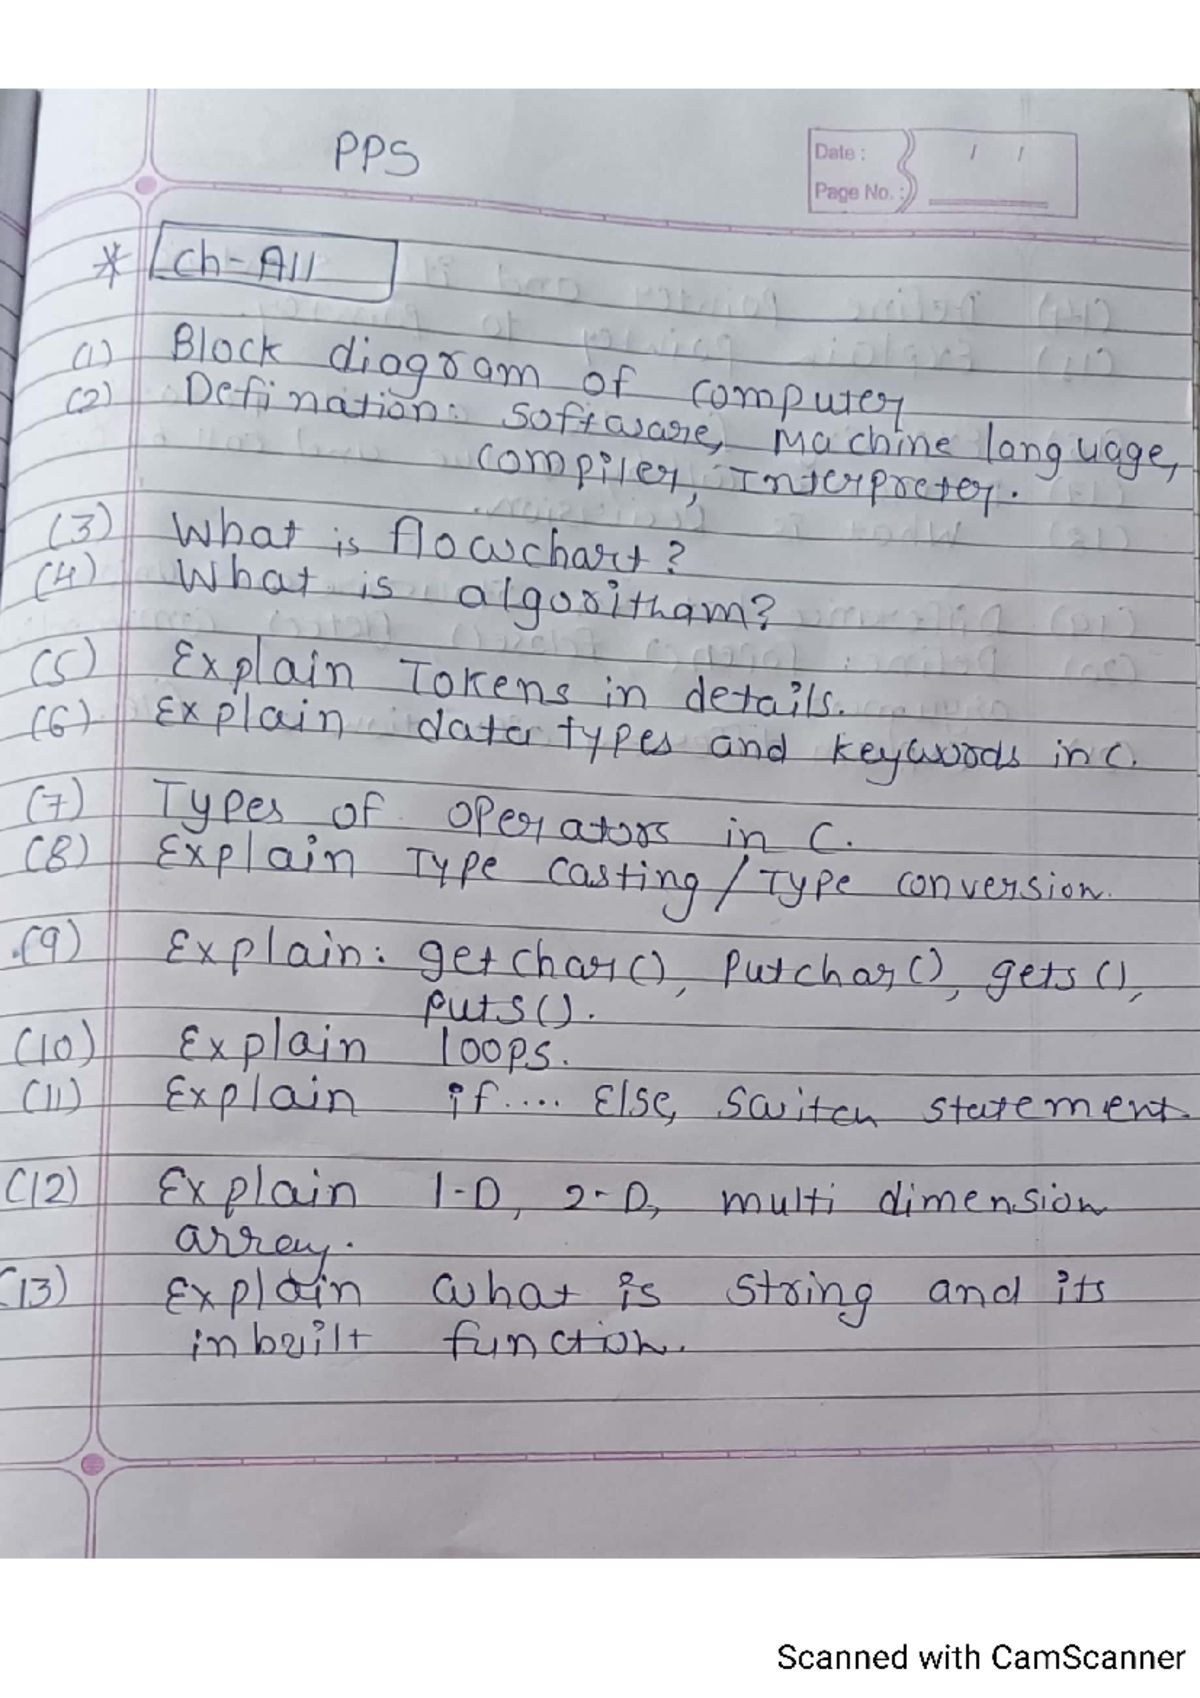 PPS
Date : / /
Page No. :
* Ch-All
(1) Block diagram of computer
(2) Defination: Software, Machine language,
compiler, Interpreter.
(3) What is flowchart?
(4) What is algoritham?
(5) Explain Tokens in details.
(6) Explain data types and keywords in C.
(7) Types of operators in C.
(8) Explain Type casting / Type conversion.
(9) Explain: getchar(), Putchar(), gets(),
puts().
(10) Explain loops.
(11) Explain if.... Else, Switch statement.
(12) Explain 1-D, 2-D, multi dimension
array.
(13) Explain what is string and its
inbuilt function.
Scanned with CamScanner